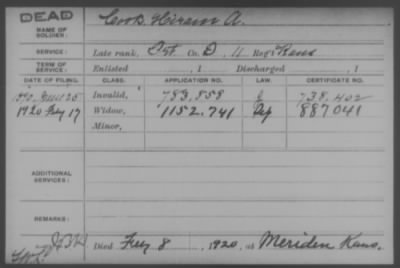 DEAD
NAME OF SOLDIER: Cook Hiram A.
SERVICE: Late rank, Pvt. Co. D, 11 Reg't Kans
TERM OF SERVICE: Enlisted , 1 Discharged , 1
DATE OF FILING. CLASS. APPLICATION NO. LAW. CERTIFICATE NO.
25 Invalid, 783.858 738.402
1920 Widow, 1152.741 887041
Minor,
ADDITIONAL SERVICES:
REMARKS:
Died 8, 1920, at Meriden Kans.